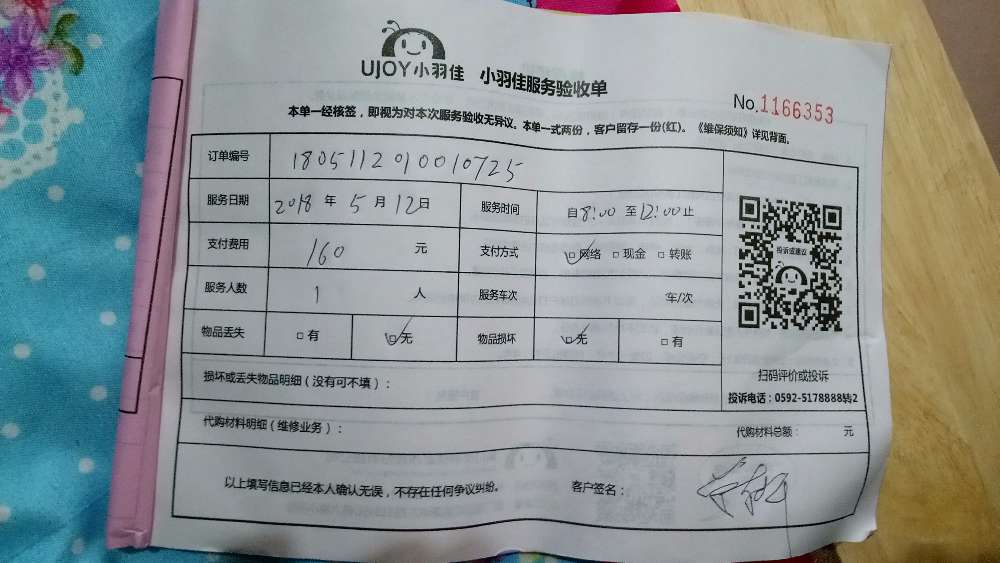 UJOY小羽佳 小羽佳服务验收单
No.1166353
本单一经核签，即视为对本次服务验收无异议。本单一式两份，客户留存一份(红)。《维保须知》详见背面。
订单编号 1805112910010725
服务日期 2018 年 5 月 12 日 服务时间 自 8:00 至 12:00 止
支付费用 160 元 支付方式 ☑网络 □现金 □转账
服务人数 1 人 服务车次 车/次
物品丢失 □有 ☑无 物品损坏 ☑无 □有
投诉或建议
扫码评价或投诉
投诉电话：0592-5178888转2
损坏或丢失物品明细（没有可不填）：
代购材料明细（维修业务）： 代购材料总额： 元
以上填写信息已经本人确认无误，不存在任何争议纠纷。 客户签名：